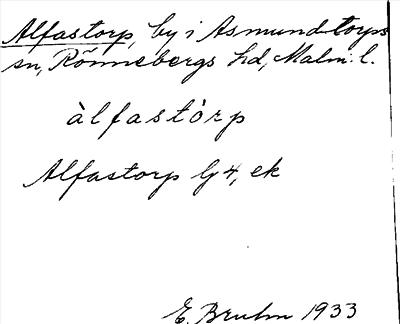 Alfastorp, by i Asmundtorps
sn, Rönnebergs hd, Malm. l.
àlfastòrp
Alfastorp lj 4, ek
E. Bruhn 1933